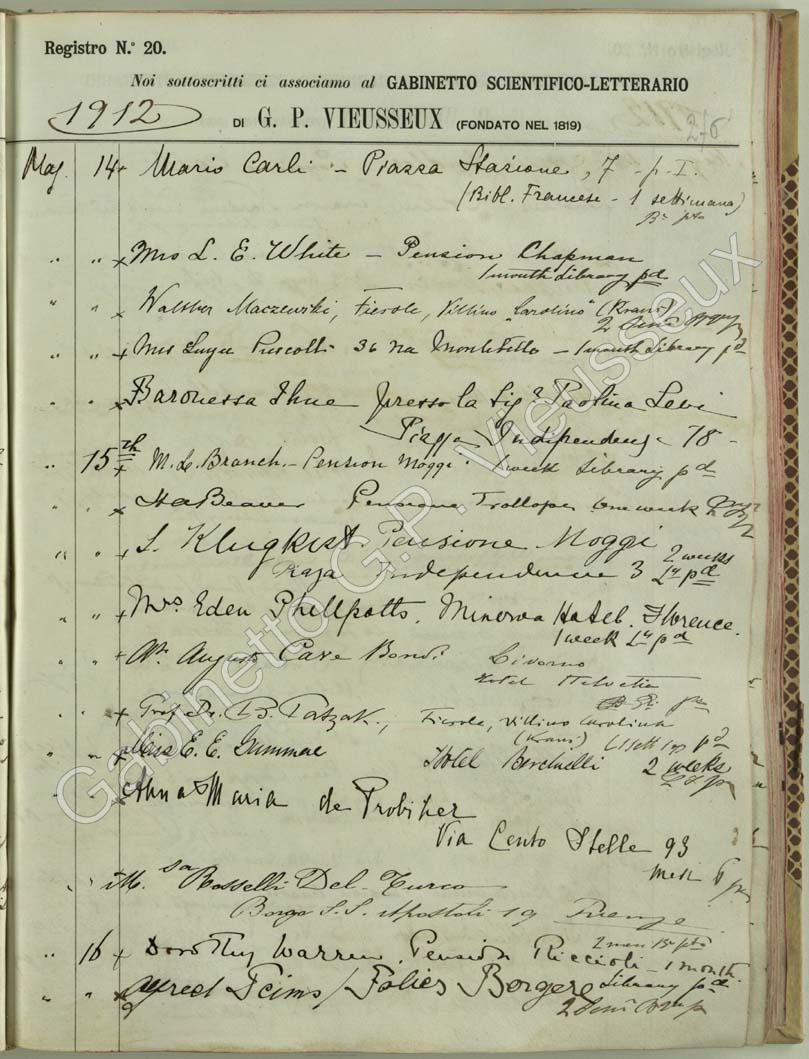 Registro N.° 20.
Noi sottoscritti ci associamo al GABINETTO SCIENTIFICO-LETTERARIO
1912 DI G. P. VIEUSSEUX (FONDATO NEL 1819)
216
Mag. 14 Mario Carli - Piazza Stazione, 7 - p. I.
(Bibl. Francese - 1 settimana)
" " Mrs L. E. White - Pension Chapman
1 month Library pd
" " Walther Maczewski, Fiesole, Villino "Carolina" (Kraus)
2
" " 36 Via Montebello - 1 month Library pd
" " Baronessa Ihne presso la Sig.ra Paolina Levi
Piazza Independenza 78 -
" 15th M. L. Branch. - Pension Moggi. 1 week Library pd
" " Beaver Pensione Trollope One week
" " S. Klugkist Pensione Moggi
2 weeks
Piaza Independence 3 Ly pd
" " Mrs Eden Phillpotts. Minerva Hotel. Florence.
1 week Ly pd
" " Augusto Cave Bondi Livorno
Hotel Helvetia
" " Prof. Dr. B. Patzak, Fiesole, Villino Carolina
(Kraus)
" " Miss E. E. Hotel Berchielli 2 weeks
" " Anna Maria de Probizer
Via Cento Stelle 93
" " M.sa Rosselli Del-Turco
Borgo S.S. Apostoli 19 Firenze
" 16 Dorothy Warren. Pension Riccioli - 1 month
Library pd
" " Alfred / Folies Bergere
2
Gabinetto G.P. Vieusseux